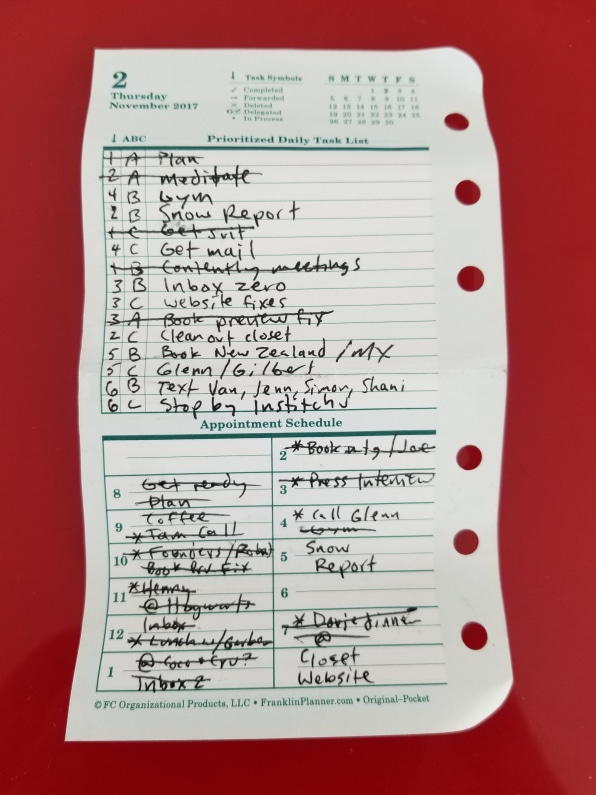 2
Thursday
November 2017
↓ Task Symbols
✓ Completed
→ Forwarded
× Deleted
Delegated
• In Process
S M T W T F S
1 2 3 4
5 6 7 8 9 10 11
12 13 14 15 16 17 18
19 20 21 22 23 24 25
26 27 28 29 30
↓ ABC Prioritized Daily Task List
1 A Plan
2 A Meditate
4 B Gym
2 B Snow Report
1 C Get suit
4 C Get mail
1 B Contently meetings
3 B Inbox zero
3 C website fixes
3 A Book preview fix
2 C Clean out closet
5 B Book New Zealand / MX
5 C Glenn/Gilbert
6 B Text Van, Jenn, Simon, Shani
6 C Stop by
Appointment Schedule
8 Get ready
Plan
9 Coffee
* Tam Call
10 * Founders/
Book Prv Fix
11 * Henry
@ Hogwarts
Inbox
12 * Lunch w/
1 @ Coco
Inbox Z
2 * Book mtg / Joe
3 * Press Interview
4 * Call Glenn
Gym
5 Snow
Report
6
7 * dinner
@
Closet
Website
© FC Organizational Products, LLC • FranklinPlanner.com • Original–Pocket